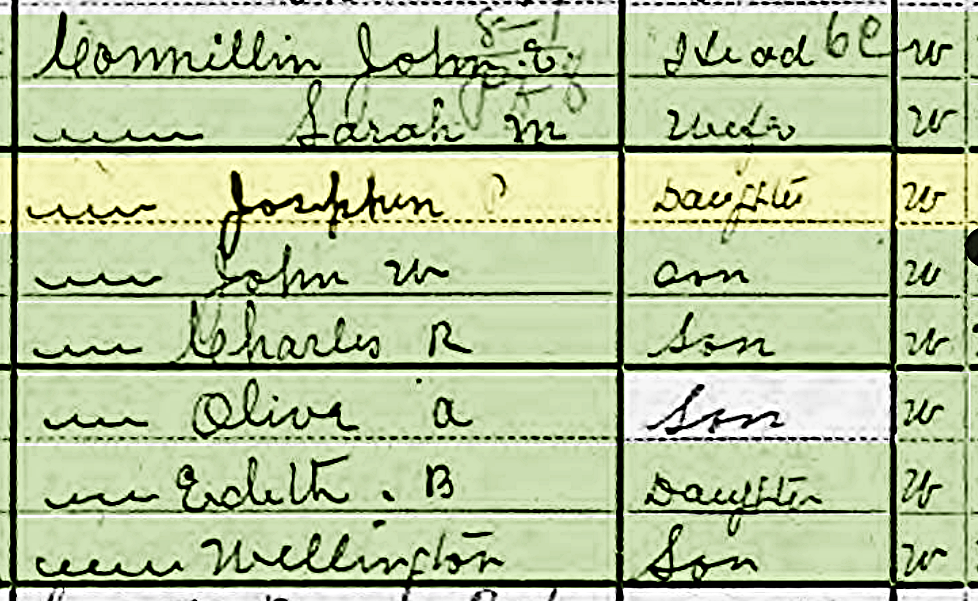 Conmillin John Head W
Sarah M Wife W
Josephen P Daughter W
John W Son W
Charles R Son W
Olive A Son W
Edeth . B Daughter W
Wellington Son W